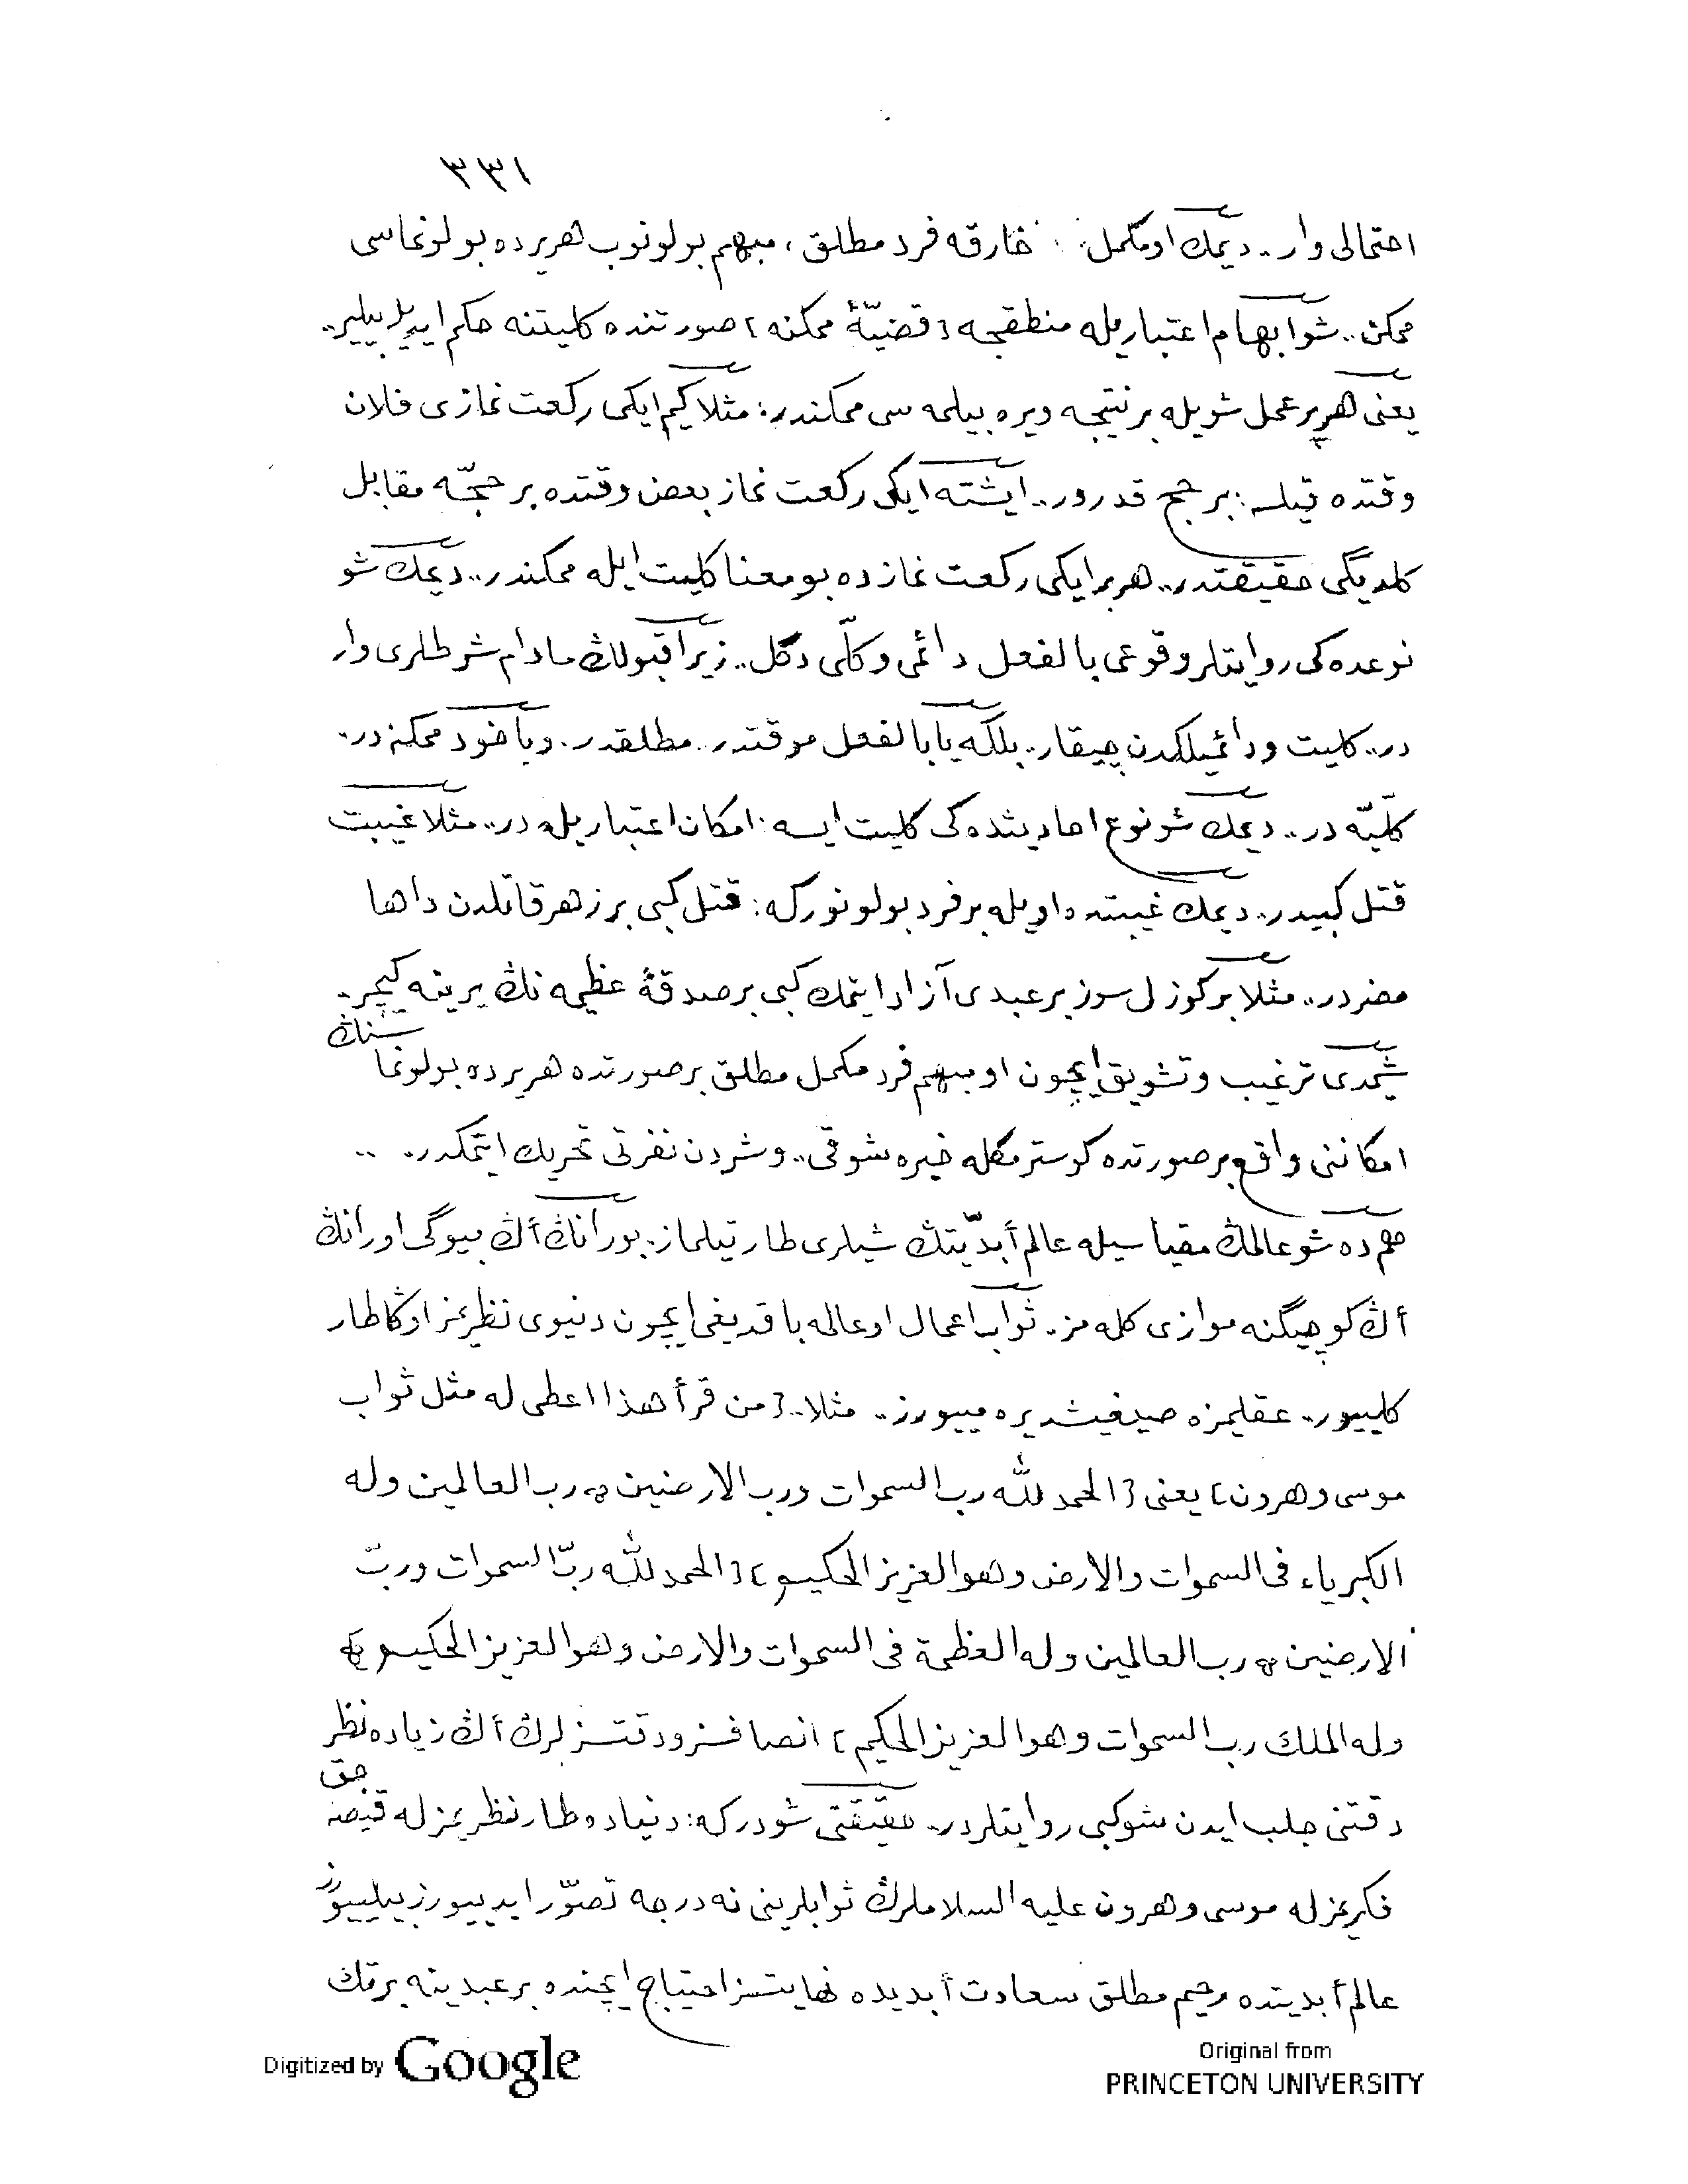 ٣٣١
احتمالی وار.. دیمك او مكمل خارقه فرد مطلق، مبهم بولونوب هریرده بولونماسی
ممكن.. شو ابهام اعتباریله منطقجه [قضیّۀ ممكنه] صورتنده كلیتنه حكم ایدیله بیلیر..
یعنی هر بر عمل شویله بر نتیجه ویره بیلمه سی ممكندر: مثلا كیم ایكی ركعت نمازی فلان
وقتده قیلسه: بر حج قدردر.. ایشته ایكی ركعت نماز بعض وقتده بر حجّه مقابل
كلدیگی حقیقتدر.. هر بر ایكی ركعت نمازده بو معنا كلیت ایله ممكندر.. دیمك شو
نوعده كی روایتلر وقوعی بالفعل دائمی و كلّی دگل.. زیرا قبولك مادام شرطلری وار
در.. كلیت و دائمیلكدن چیقار.. بلكه یا بالفعل موقتدر.. مطلقدر. ویاخود ممكنه در.
كلّیّه در.. دیمك شو نوع احادیثده كی كلیت ایسه: امكان اعتباریله در.. مثلا غیبت
قتل كبیدر.. دیمك غیبتده اویله بر فرد بولونور كه: قتل كبی بر زهر قاتلدن داها
مضردر.. مثلا بر كوزل سوز بر عبدی آزاد ایتمك كبی بر صدقۀ عظیمه نڭ یرینه كیچر.
شیمدی ترغیب و تشویق ایچون او مبهم فرد مكمل مطلق بر صورتده هریرده بولونما سنڭ
امكاننی واقع بر صورتده كوسترمكله خیره شوقی.. و شردن نفرتی تحریك ایتمكدر. ..
هم ده شو عالمڭ مقیاسیله عالم أبدّیتڭ شیلری طارتیلماز. بورانڭ أڭ بیوگی اورانڭ
أڭ كوچیگنه موازی كله مز. ثواب اعمال او عالمه باقدیغی ایچون دنیوی نظریمز اوڭا طار
كلییور.. عقلیمزه صیغیشدیره مییورز.. مثلا.. [من قرأ هذا اعطی له مثل ثواب
موسی و هرون] یعنی [الحمد لله رب السموات ورب الارضین رب العالمین وله
الكبریاء فی السموات والارض وهو العزیز الحكیم] [الحمد لله ربّ السموات وربّ
الارضین رب العالمین وله العظمة فی السموات والارض وهو العزیز الحكیم
وله الملك رب السموات وهو العزیز الحكیم] انصافسز و دقتسزلرڭ أڭ زیاده نظر
دقتنی جلب ایدن شو كبی روایتلردر. حقیقتی شودر كه: دنیاده طار نظریمزله قیصه جق
فكریمزله موسی و هرون علیه السلاملرڭ ثوابلرینی نه درجه تصوّر ایدییورز بیلییورز
عالم أبدیتده رحیم مطلق سعادت أبدیده نهایتسز احتیاج ایچنده بر عبدینه بر تك
Digitized by Google
Original from
PRINCETON UNIVERSITY